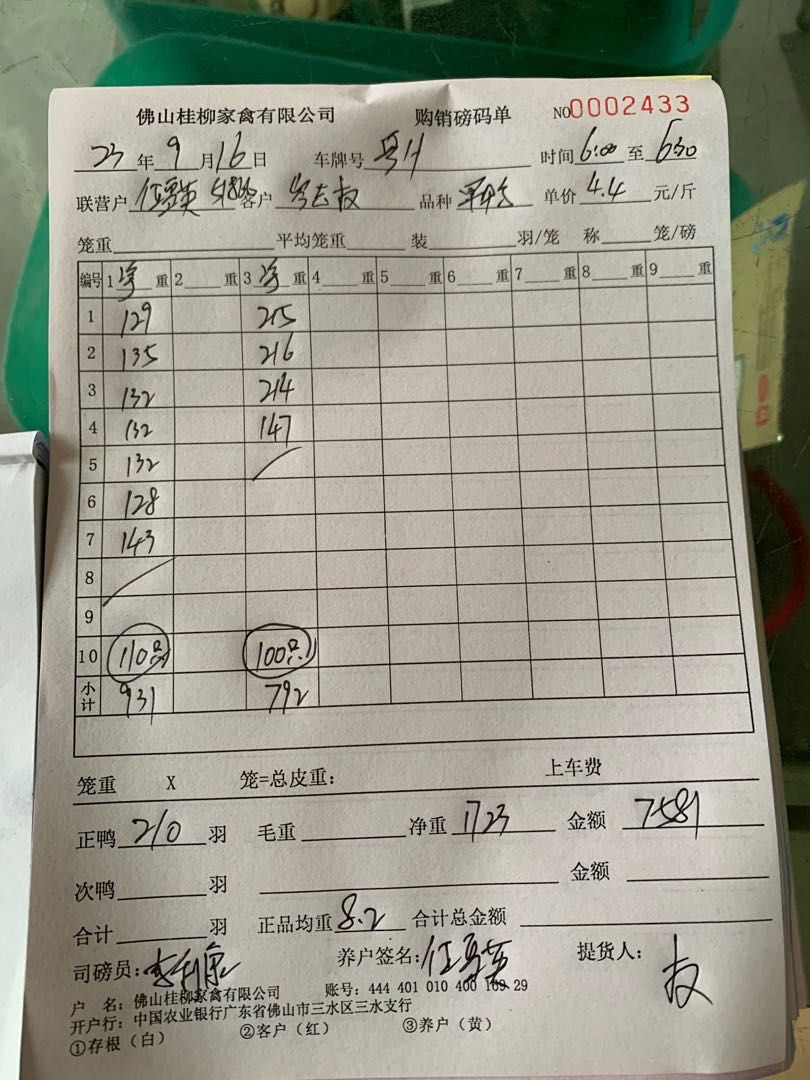 佛山桂柳家禽有限公司 购销磅码单 NO0002433
23年9月16日 车牌号 时间6:00至6:30
联营户 客户 品种 单价4.4元/斤
笼重 平均笼重 装 羽/笼 称 笼/磅
编号 1 重 2 重 3 重 4 重 5 重 6 重 7 重 8 重 9 重
1 129 215
2 135 216
3 132 214
4 132 147
5 132
6 128
7 143
8
9
10 110只 100只
小计 931 792
笼重 X 笼=总皮重: 上车费
正鸭210羽 毛重 净重1723 金额7581
次鸭 羽 金额
合计 羽 正品均重8.2 合计总金额
司磅员: 养户签名: 提货人:
户 名:佛山桂柳家禽有限公司 账号:444 401 010 400 169 29
开户行:中国农业银行广东省佛山市三水区三水支行
①存根(白) ②客户(红) ③养户(黄)